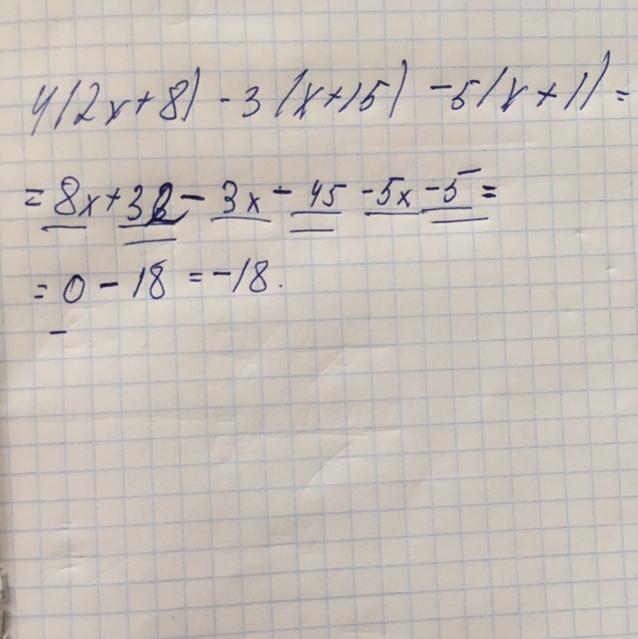 4(2x+8)-3(x+15)-5(x+1)=
=8x+32-3x-45-5x-5=
=0-18=-18.